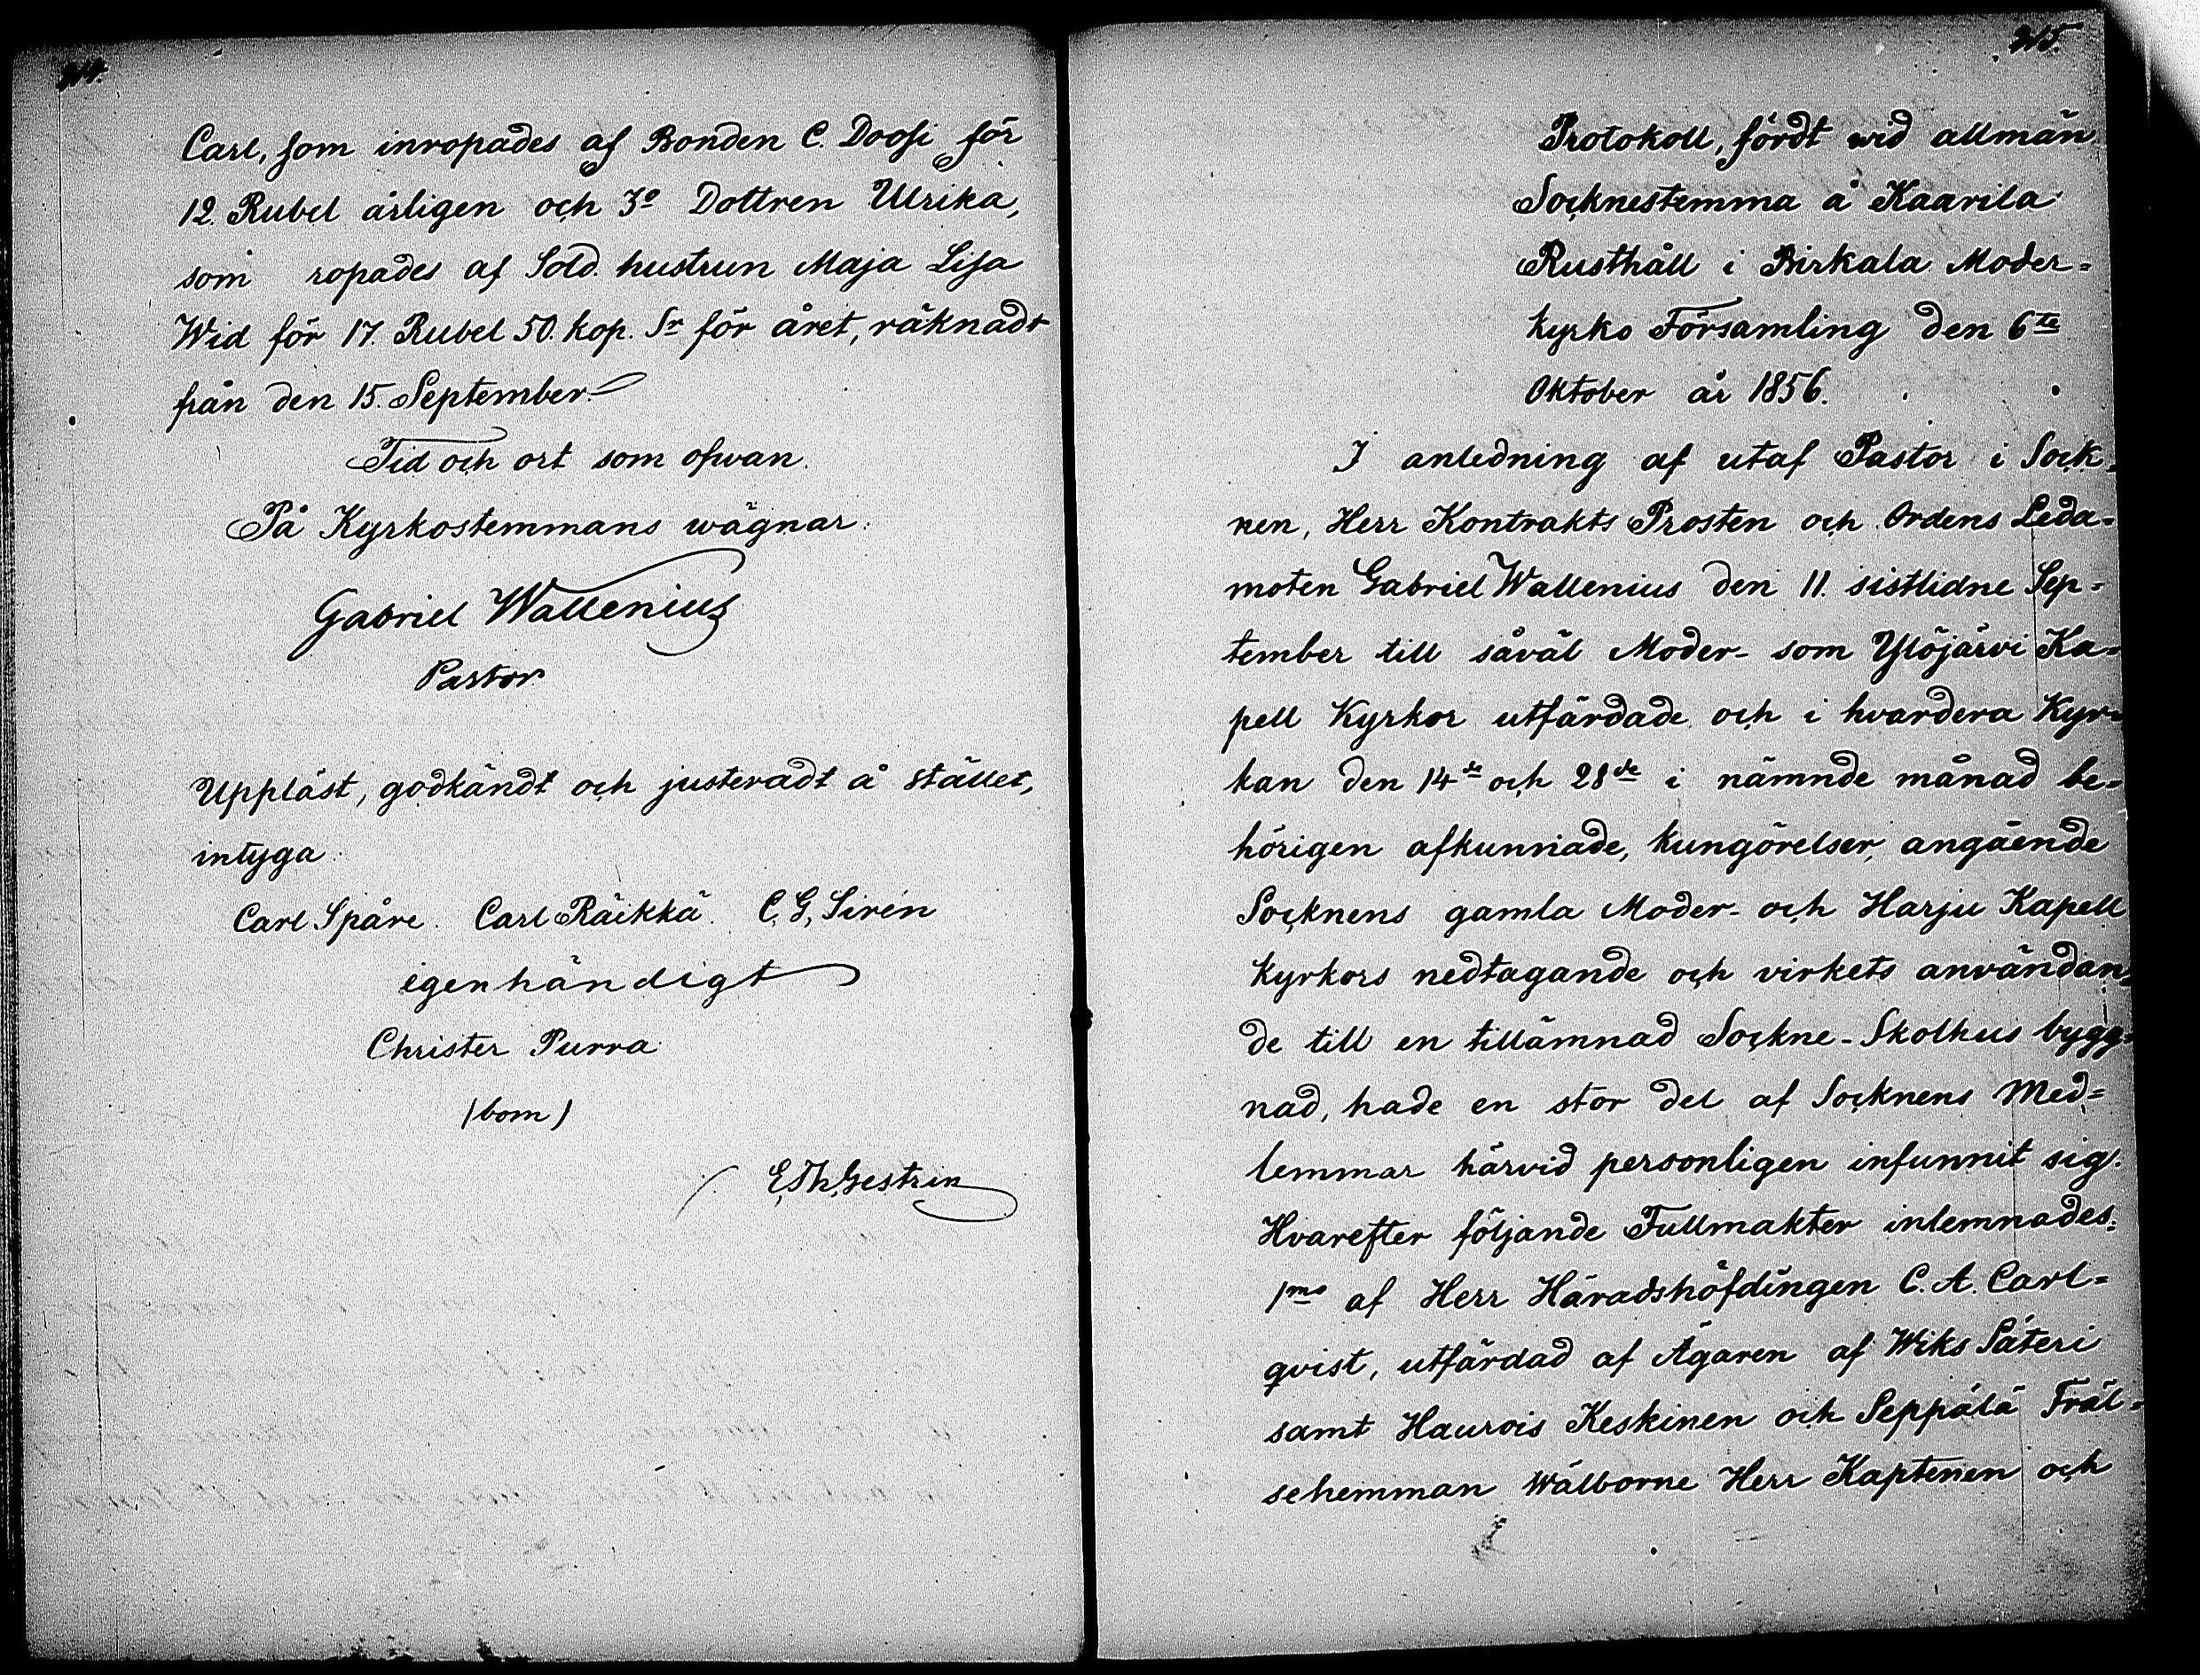 214.
Carl, som inropades af Bonden C. Doosi för
12. Rubel årligen och 3º Dottren Ulrika,
som ropades af Sold. hustrun Maja Lisa
Wid för 17. Rubel 50. kop. Sr för året, räknadt
från den 15. September.
Tid och ort som ofwan.
På Kyrkostemmans wägnar:
Gabriel Wallenius
Pastor
Uppläst, godkändt och justeradt å stället,
intyga
Carl Spåre. Carl Räikkä. C, G, Sirén
egenhändigt
Christer Purra
/bom/
E,Th,Gestrin
215.
Protokoll, fördt wid allmän
Socknestemma å Kaarila
Rusthåll i Birkala Moder=
kyrko Församling den 6te
Oktober år 1856.
I anledning af utaf Pastor i Sock=
nen, Herr Kontrakts Prosten och Ordens Leda=
moten Gabriel Wallenius den 11. sistlidne Sep=
tember till såväl Moder- som Ylöjärvi Ka=
pell Kyrkor utfärdade och i hvardera Kyr=
kan den 14de och 28de i nämnde månad be=
hörigen afkunnade, kungörelser, angående
Socknens gamla Moder- och Harju Kapell
kyrkors nedtagande och virkets användan=
de till en tillämnad Sockne-Skolhus bygg=
nad, hade en stor del af Socknens Med=
lemmar härvid personligen infunnit sig.
Hvarefter följande Fullmakter inlemnades:
1mo af Herr Häradshöfdingen C. A. Carl=
qvist, utfärdad af Ägaren af Wiks Säteri
samt Haurois Keskinen och Seppälä Fräl=
sehemman Wälborne Herr Kaptenen och